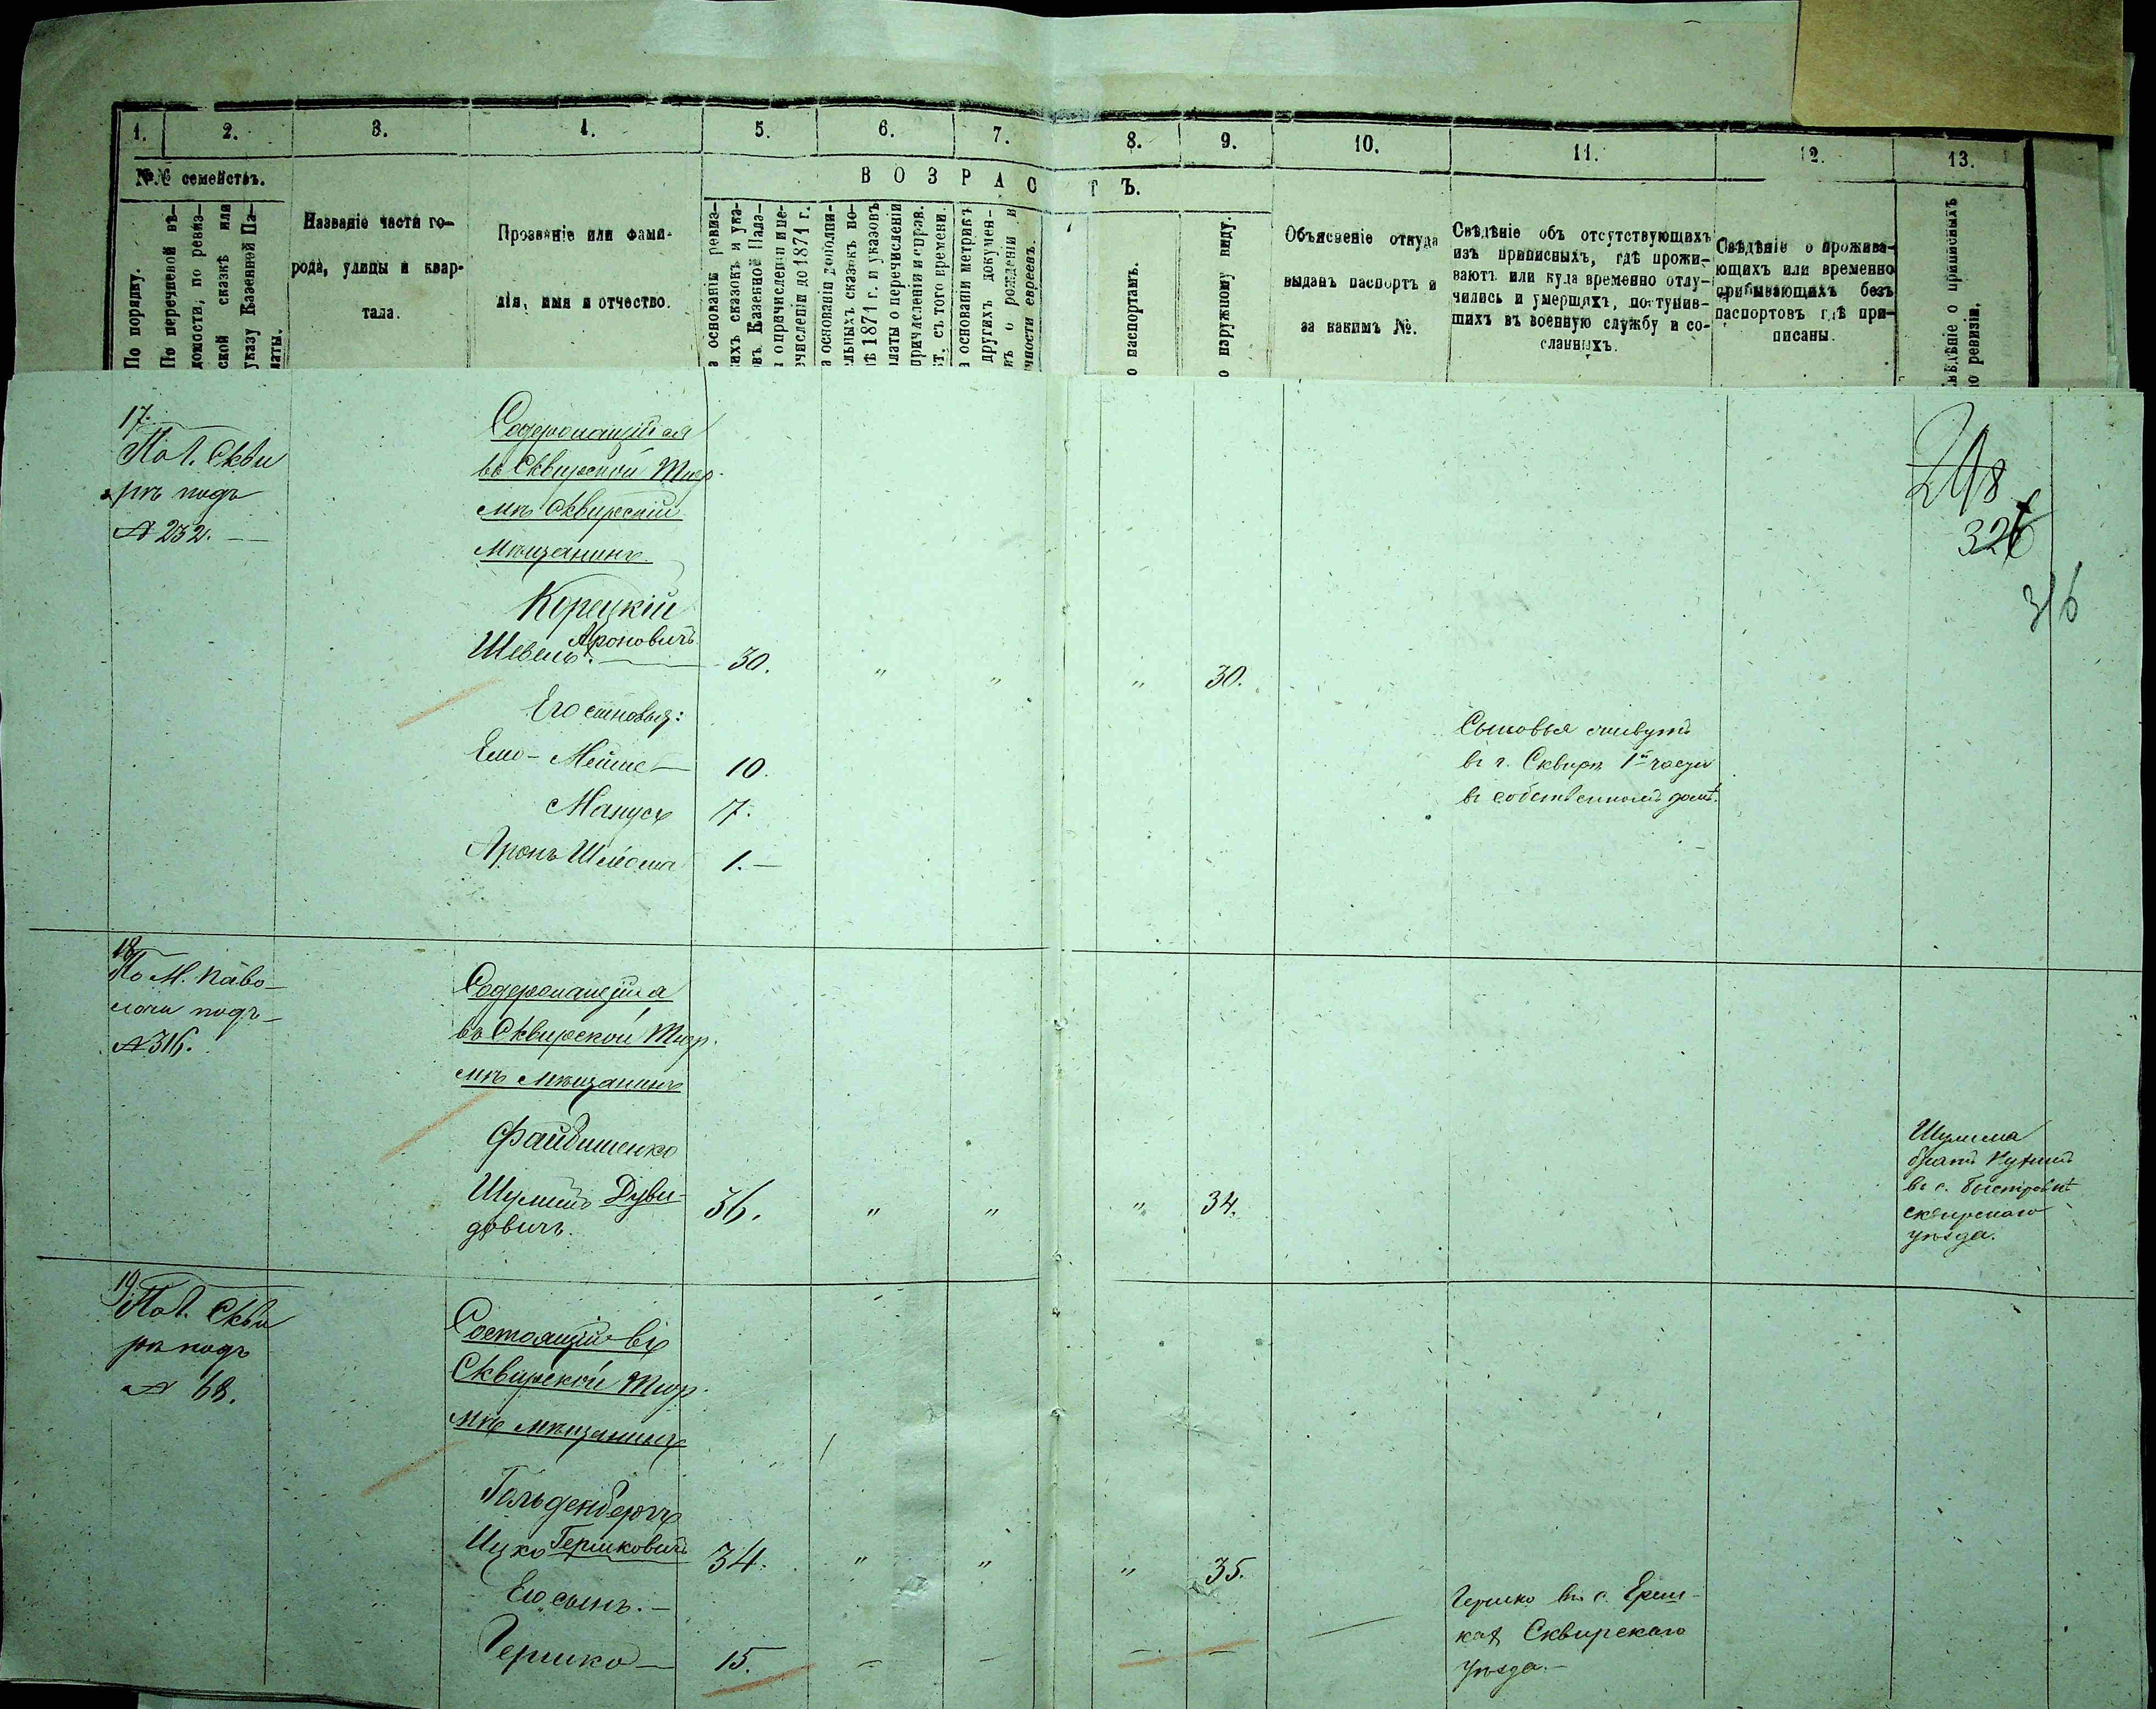 1. 2. 3. 4. 5. 6. 7. 8. 9. 10. 11. 12. 13.
№№ семействъ.
ВОЗРАСТЪ.
По порядку.
По перечневой вѣ-
домости, по ревиз-
ской сказкѣ или
указу Казенной Па-
латы.
Названіе части го-
рода, улицы и квар-
тала.
Прозваніе или фами-
лія, имя и отчество.
а основаніи ревиз-
скихъ сказокъ и ука-
овъ Казенной Пала-
ы о причисленіи и пе-
ечисленіи до 1871 г.
а основаніи дополни-
ельныхъ сказокъ по-
лѣ 1871 г. и указовъ
латы о перечисленіи
причисленіи и справ.
ст. съ того времени.
а основаніи метрикъ
другихъ докумен-
въ о рожденіи и
ичности евреевъ.
о паспортамъ.
о наружному виду.
Объясненіе откуда
выданъ паспортъ и
за какимъ №.
Свѣдѣніе объ отсутствующихъ
изъ приписныхъ, гдѣ прожи-
ваютъ или куда временно отлу-
чились и умершихъ, поступив-
шихъ въ военную службу и со-
сланныхъ.
Свѣдѣніе о прожива-
ющихъ или временно
прибывающихъ безъ
паспортовъ гдѣ при-
писаны.
Свѣдѣніе о приписныхъ
по ревизіи.
17.
По г. Скви
рѣ подъ
№ 232.
Содержащійся
въ Сквирской Тюр.
мѣ Сквирскій
мѣщанинъ
Корецкій
Ароновичъ
Шевель. 30. " " " 30.
Его сыновья:
Ело-Мейше 10.
Манусъ 7.
Аронъ Шлёма 1.
Сыновья живутъ
въ г. Сквирѣ 1й части
въ собственномъ домѣ.
326
316
18.
По М. Паво-
лочи подъ
№ 316.
Содержащійся
въ Сквирской Тюр.
мѣ мѣщанинъ
Файбишенко
Шулимъ Дуви-
довичъ. 36. " " " 34.
Шулима
братъ
въ с.
Сквирскаго
уѣзда.
19.
По г. Скви
рѣ подъ
№ 68.
Состоящій въ
Сквирской Тюр.
мѣ мѣщанинъ
Гольденбергъ
Ицко Гершковичъ 34. " " " 35.
Его сынъ.
Гершко 15.
Гершко въ с. Ерш-
кахъ Сквирскаго
уѣзда.